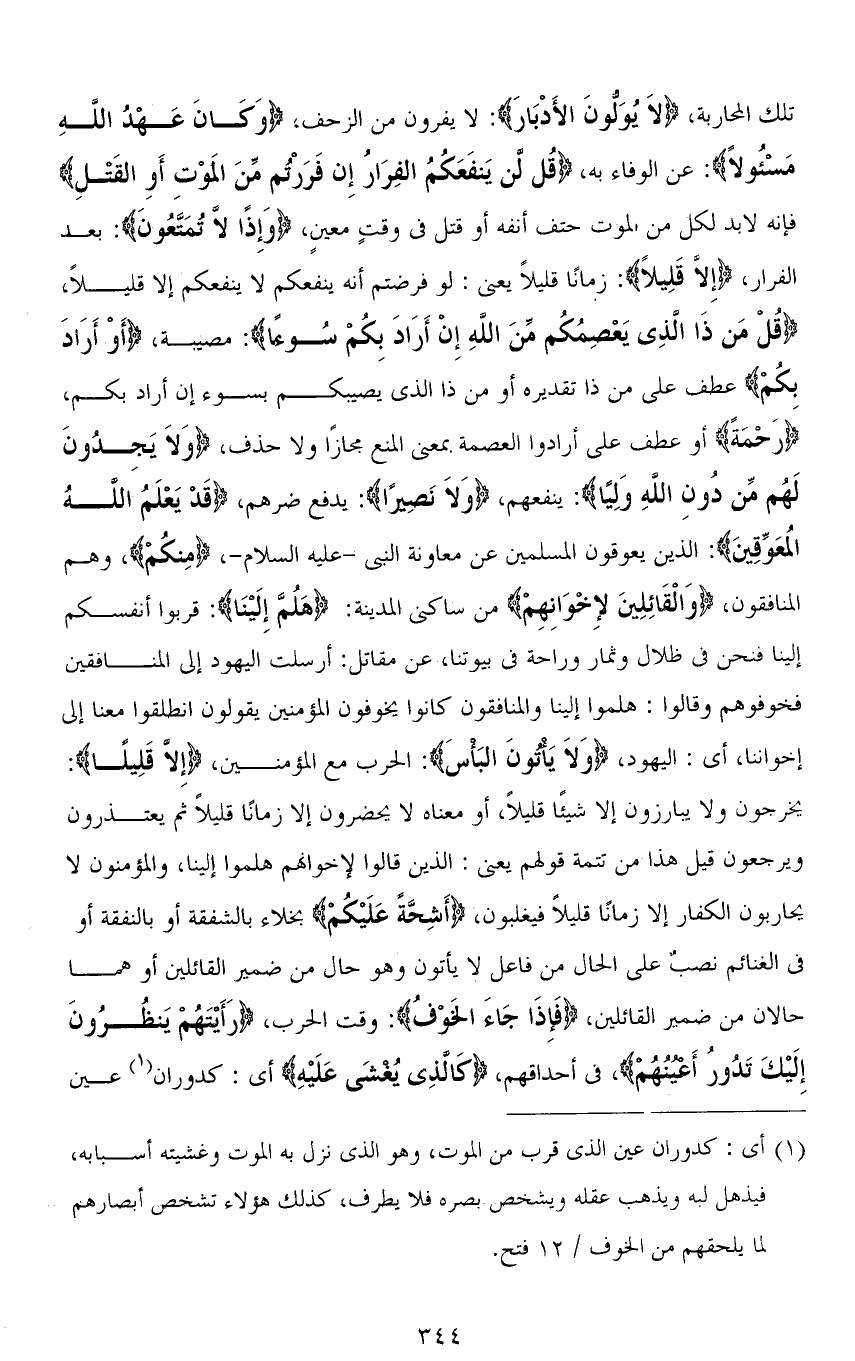 تلك المحاربة، ﴿لاَ يُوَلُّونَ الأَدْبَارَ﴾: لا يفرون من الزحف، ﴿وَكَــانَ عَــهْدُ اللَّــهِ
مَسْئُولاً﴾: عن الوفاء به، ﴿قُل لَّن يَنفَعَكُمُ الفِرَارُ إِن فَرَرْتُم مِّنَ المَوْتِ أَوِ القَتْــلِ﴾
فإنه لابد لكل من الموت حتف أنفه أو قتل فى وقتٍ معينٍ، ﴿وَإِذًا لاَّ تُمَتَّعُونَ﴾: بعــد
الفرار، ﴿إِلاَّ قَلِيلاً﴾: زمانًا قليلاً يعنى : لو فرضتم أنه ينفعكم لا ينفعكم إلا قليــــلاً،
﴿قُلْ مَن ذَا الَّذِى يَعْصِمُكُم مِّنَ اللَّهِ إِنْ أَرَادَ بِكُمْ سُــوءًا﴾: مصيبــة، ﴿أَوْ أَرَادَ
بِكُمْ﴾ عطف على من ذا تقديره أو من ذا الذى يصيبكــــم بســوء إن أراد بكــم،
﴿رَحْمَةً﴾ أو عطف على أرادوا العصمة بمعنى المنع مجازًا ولا حذف، ﴿وَلاَ يَجِــدُونَ
لَهُم مِّن دُونِ اللَّهِ وَلِيًّا﴾: ينفعهم، ﴿وَلاَ نَصِيرًا﴾: يدفع ضرهم، ﴿قَدْ يَعْلَمُ اللَّـــهُ
المُعَوِّقِينَ﴾: الذين يعوقون المسلمين عن معاونة النبى -عليه السلام-، ﴿مِنكُمْ﴾، وهــم
المنافقون، ﴿وَالْقَائِلِينَ لإِخْوَانِهِمْ﴾ من ساكنى المدينة: ﴿هَلُمَّ إِلَيْنَا﴾: قربوا أنفســكم
إلينا فنحن فى ظلال وثمار وراحة فى بيوتنا، عن مقاتل: أرسلت اليهود إلى المنـــافقين
فخوفوهم وقالوا : هلموا إلينا والمنافقون كانوا يخوفون المؤمنين يقولون انطلقوا معنا إلى
إخواننا، أى : اليهود، ﴿وَلاَ يَأْتُونَ البَأْسَ﴾: الحرب مع المؤمنــــين، ﴿إِلاَّ قَلِيلًــا﴾:
يخرجون ولا يبارزون إلا شيئًا قليلاً، أو معناه لا يحضرون إلا زمانًا قليلاً ثم يعتـــذرون
ويرجعون قيل هذا من تتمة قولهم يعنى : الذين قالوا لإخوانهم هلموا إلينا، والمؤمنون لا
يحاربون الكفار إلا زمانًا قليلاً فيغلبون، ﴿أَشِحَّةً عَلَيْكُمْ﴾ بخلاء بالشفقة أو بالنفقة أو
فى الغنائم نصبٌ على الحال من فاعل لا يأتون وهو حال من ضمير القائلين أو همــا
حالان من ضمير القائلين، ﴿فَإِذَا جَاءَ الخَوْفُ﴾: وقت الحرب، ﴿رَأَيْتَهُمْ يَنظُــرُونَ
إِلَيْكَ تَدُورُ أَعْيُنُهُمْ﴾، فى أحداقهم، ﴿كَالَّذِى يُغْشَى عَلَيْهِ﴾ أى : كدوران(١) عــين
(١) أى : كدوران عين الذى قرب من الموت، وهو الذى نزل به الموت وغشيته أســبابه،
فيذهل لبه ويذهب عقله ويشخص بصره فلا يطرف، كذلك هؤلاء تشخص أبصارهم
لما يلحقهم من الخوف / ١٢ فتح.
٣٤٤